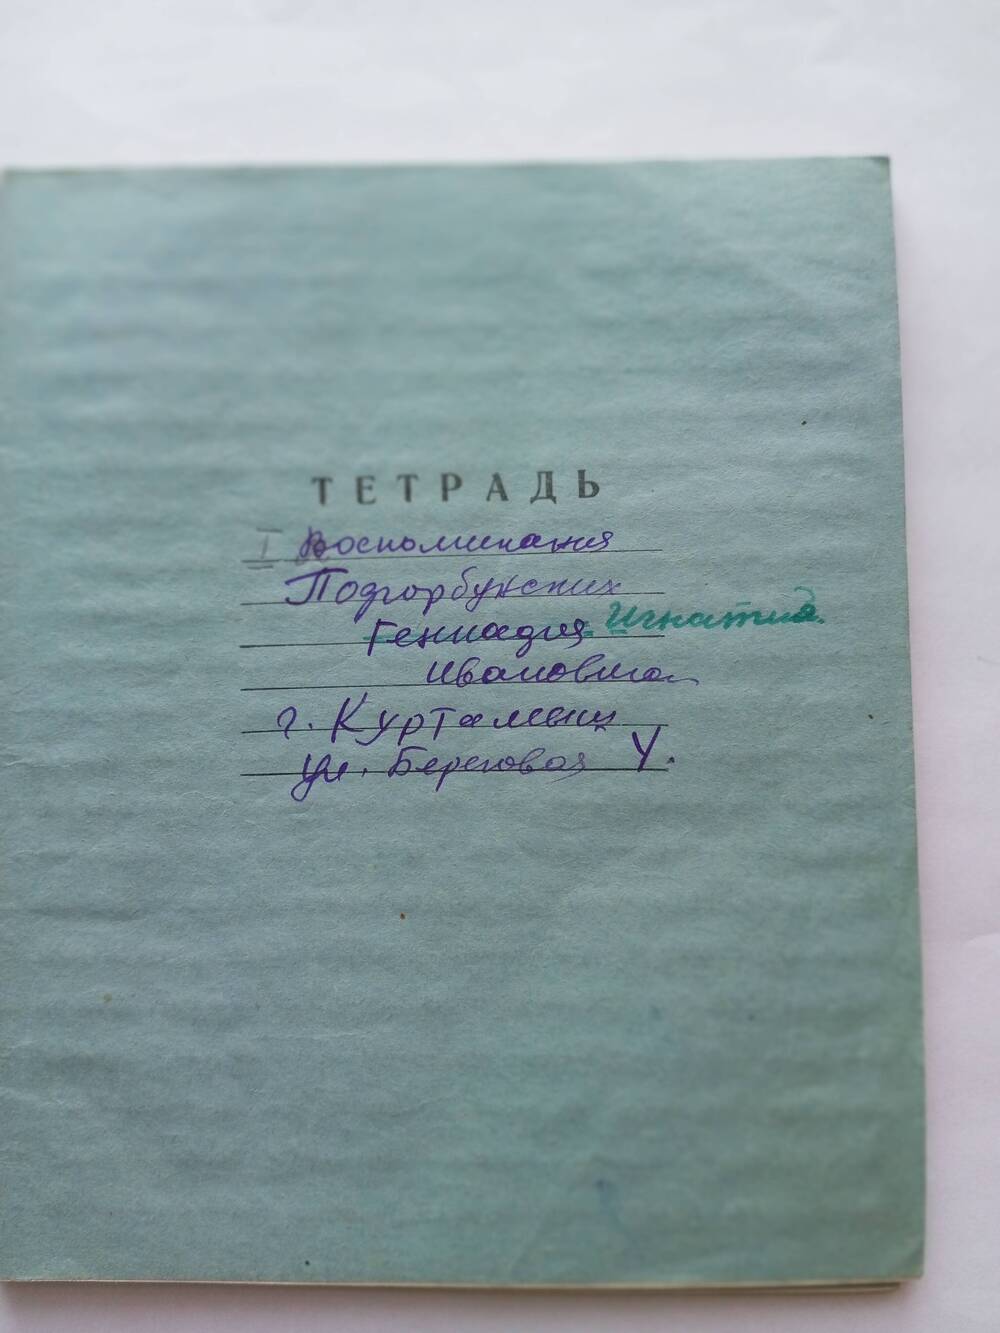 ТЕТРАДЬ
I Воспоминания
Подгорбунских
Геннадия Игнатия.
Ивановича
г. Куртамыш
ул. Береговая 4.